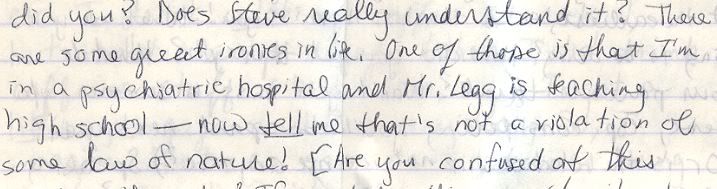 did you? Does Steve really understand it? There
are some great ironies in life. One of those is that I'm
in a psychiatric hospital and Mr. Legg is teaching
high school — now tell me that's not a violation of
some law of nature! [Are you confused at this